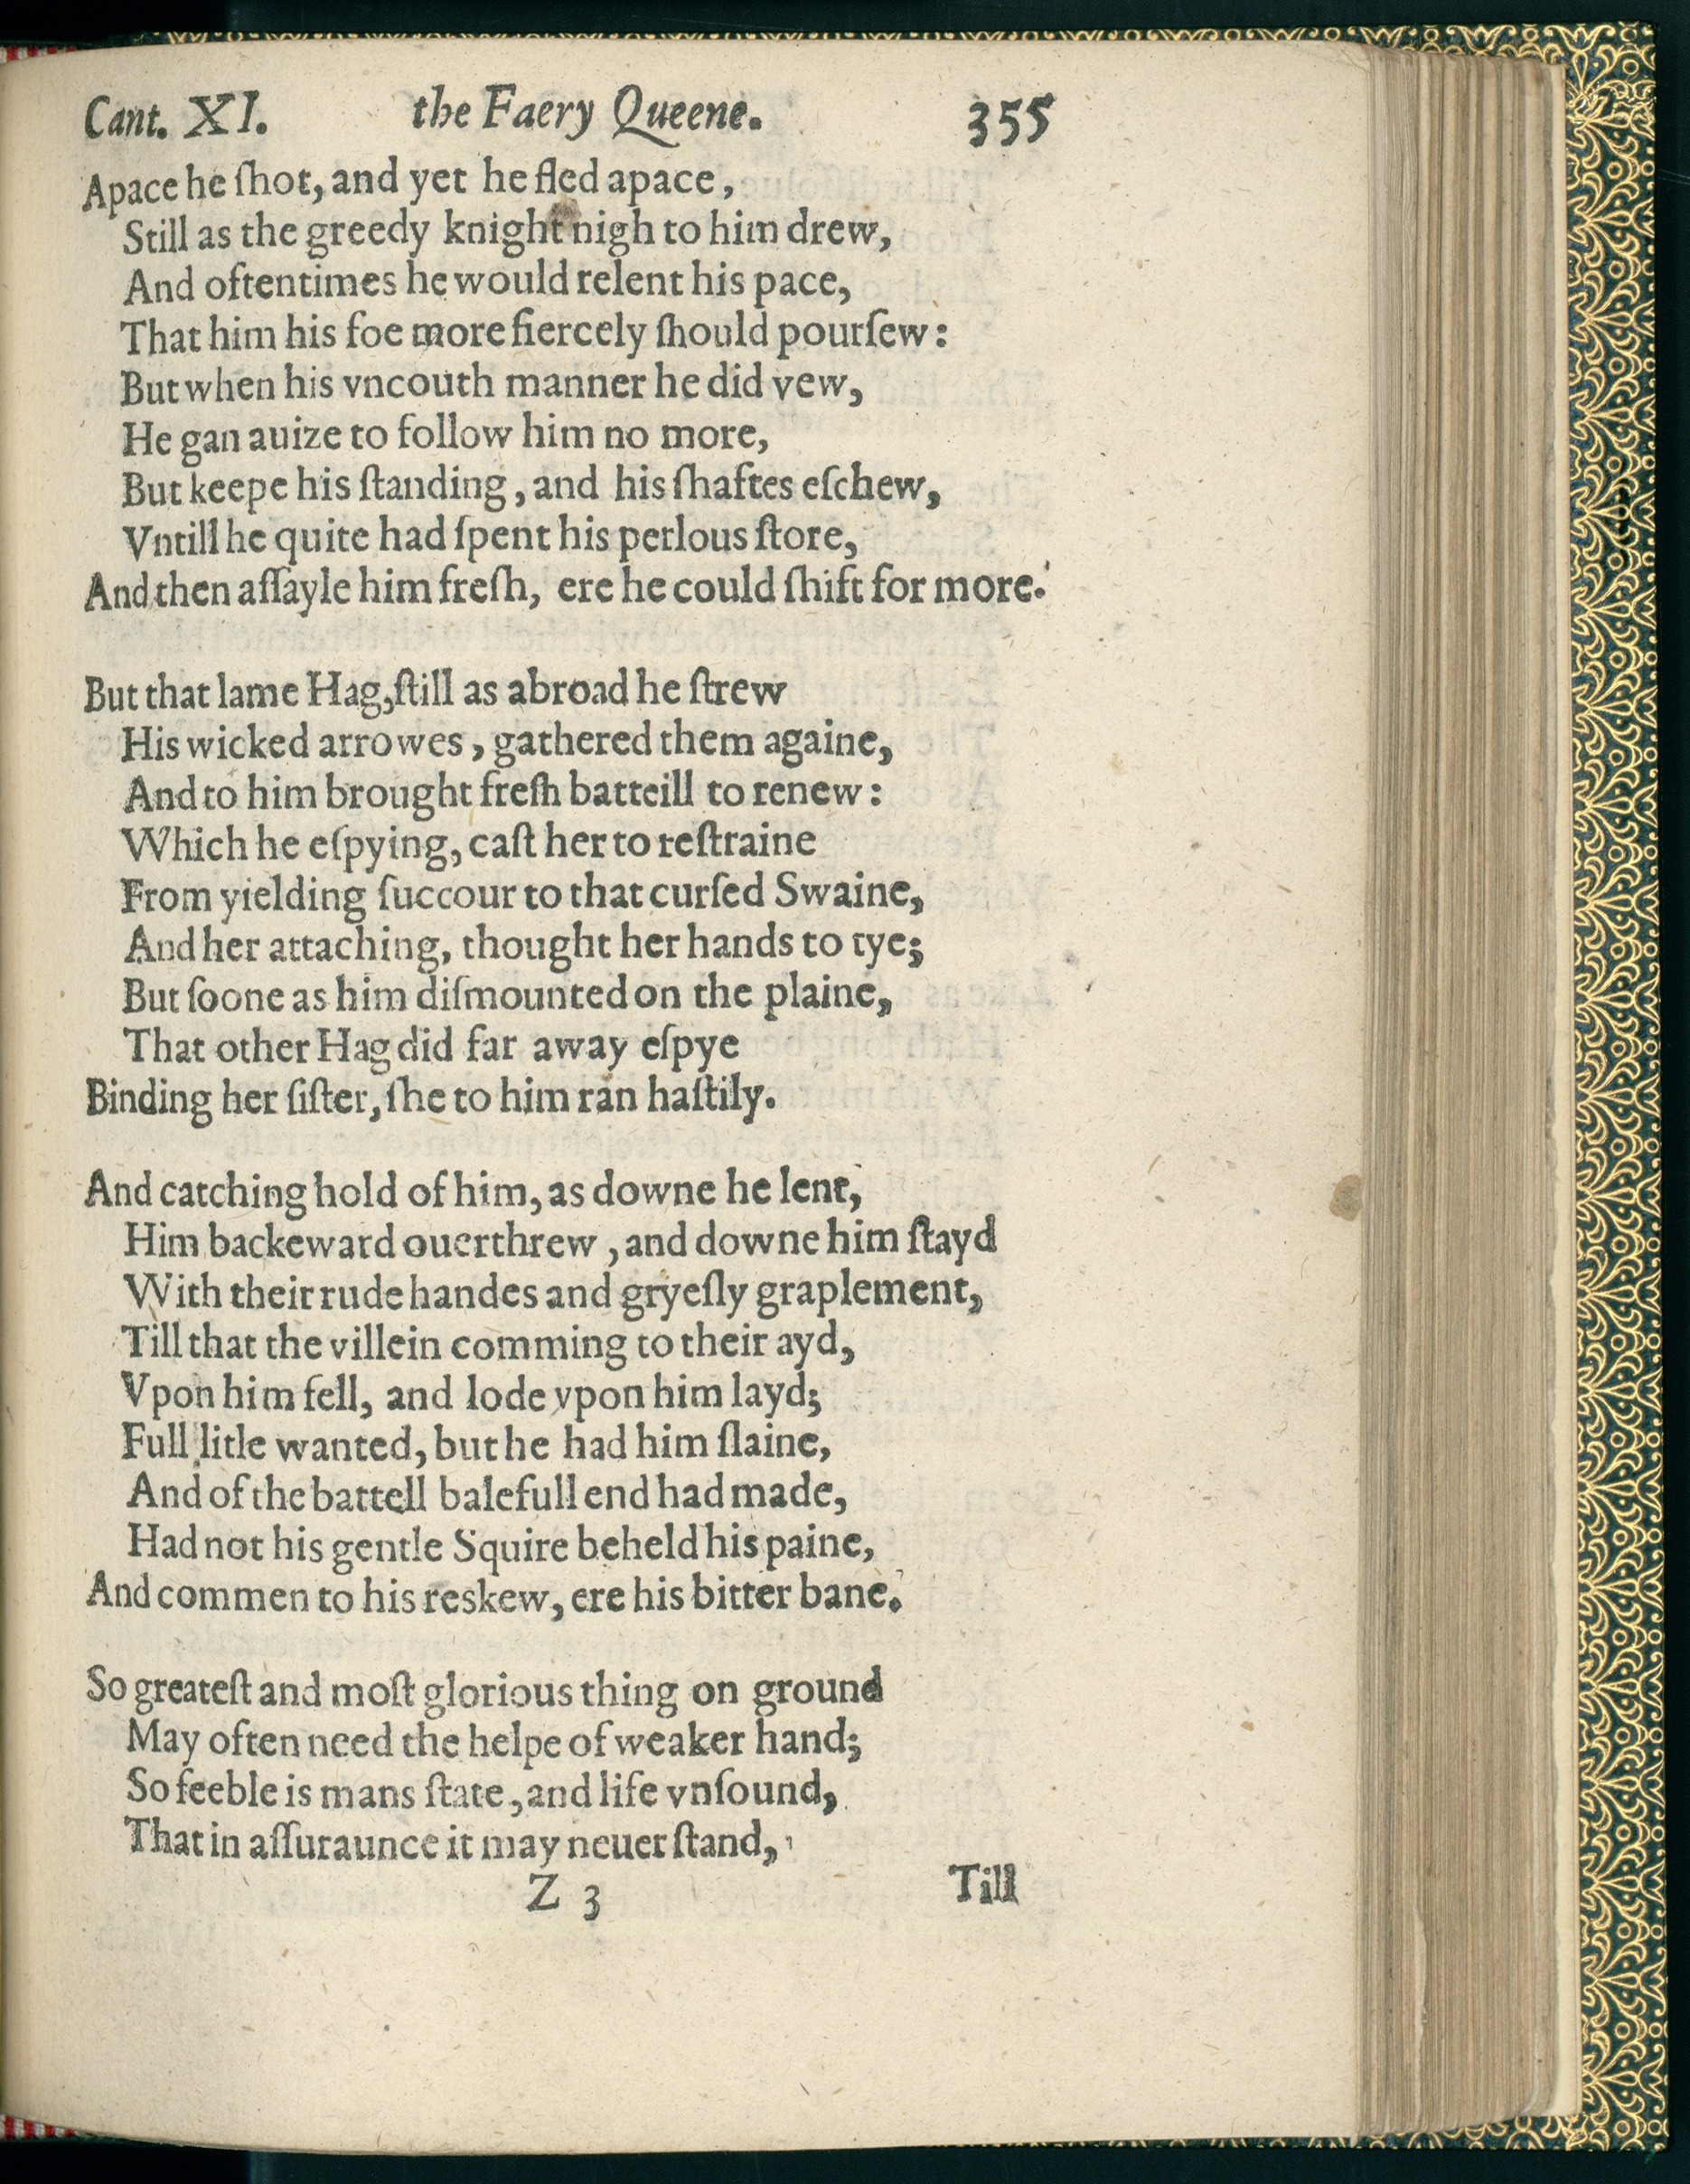 Cant. XI. the Faery Queene. 355
Apace he ſhot, and yet he fled apace,
Still as the greedy knight nigh to him drew,
And oftentimes he would relent his pace,
That him his foe more fiercely ſhould pourſew:
But when his vncouth manner he did vew,
He gan auize to follow him no more,
But keepe his ſtanding, and his ſhaftes eſchew,
Vntill he quite had ſpent his perlous ſtore,
And then aſſayle him freſh, ere he could ſhift for more.
But that lame Hag, ſtill as abroad he ſtrew
His wicked arrowes, gathered them againe,
And to him brought freſh batteill to renew:
Which he eſpying, caſt her to reſtraine
From yielding ſuccour to that curſed Swaine,
And her attaching, thought her hands to tye;
But ſoone as him diſmounted on the plaine,
That other Hag did far away eſpye
Binding her ſiſter, ſhe to him ran haſtily.
And catching hold of him, as downe he lent,
Him backeward ouerthrew, and downe him ſtayd
With their rude handes and gryeſly graplement,
Till that the villein comming to their ayd,
Vpon him fell, and lode vpon him layd;
Full litle wanted, but he had him ſlaine,
And of the battell balefull end had made,
Had not his gentle Squire beheld his paine,
And commen to his reskew, ere his bitter bane.
So greateſt and moſt glorious thing on ground
May often need the helpe of weaker hand;
So feeble is mans ſtate, and life vnſound,
That in aſſuraunce it may neuer ſtand,
Z 3 Till